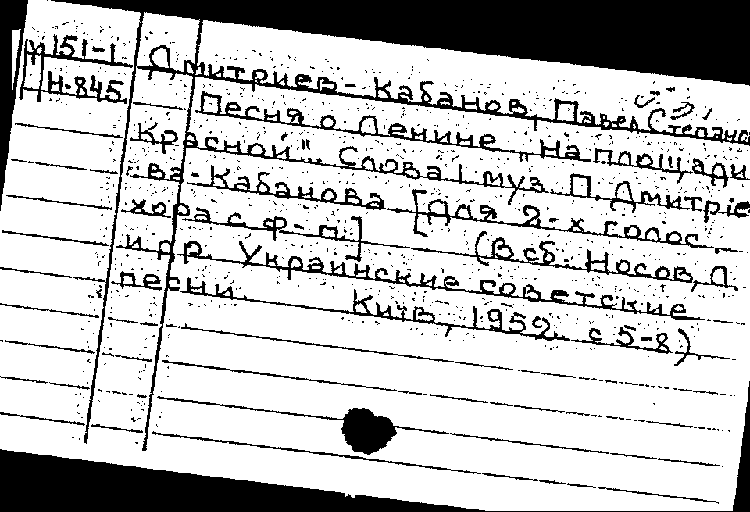 У151-1. Дмитриев-Кабанов, Павел
Н-845. Песня о Ленине „На площади
Красной". Слова і муз. П. Дмитріе-
ва-Кабанова. [Для 2-х голос.
хора с ф-п.] (В сб.: Носов, Л.
и др. Украинские советские
песни. Київ, 1952. с 5-8).